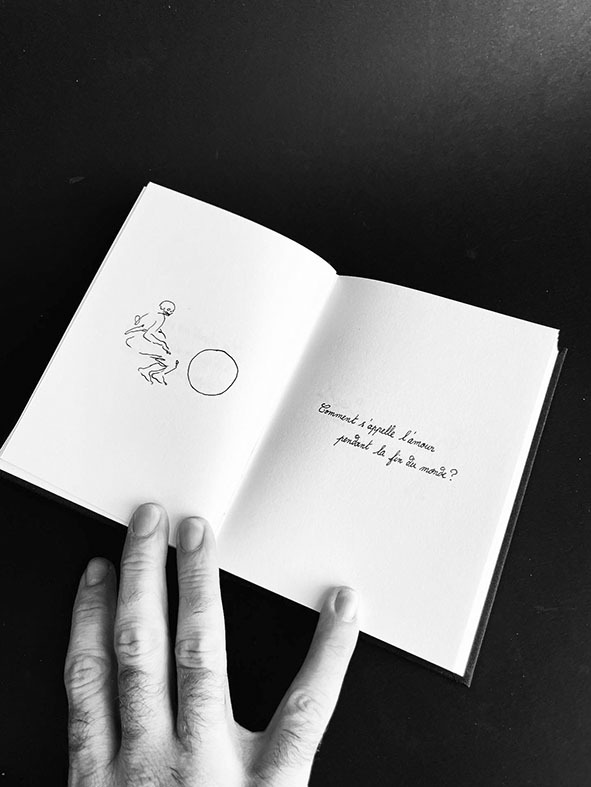 Comment s'appelle l'amour
pendant la fin du monde?